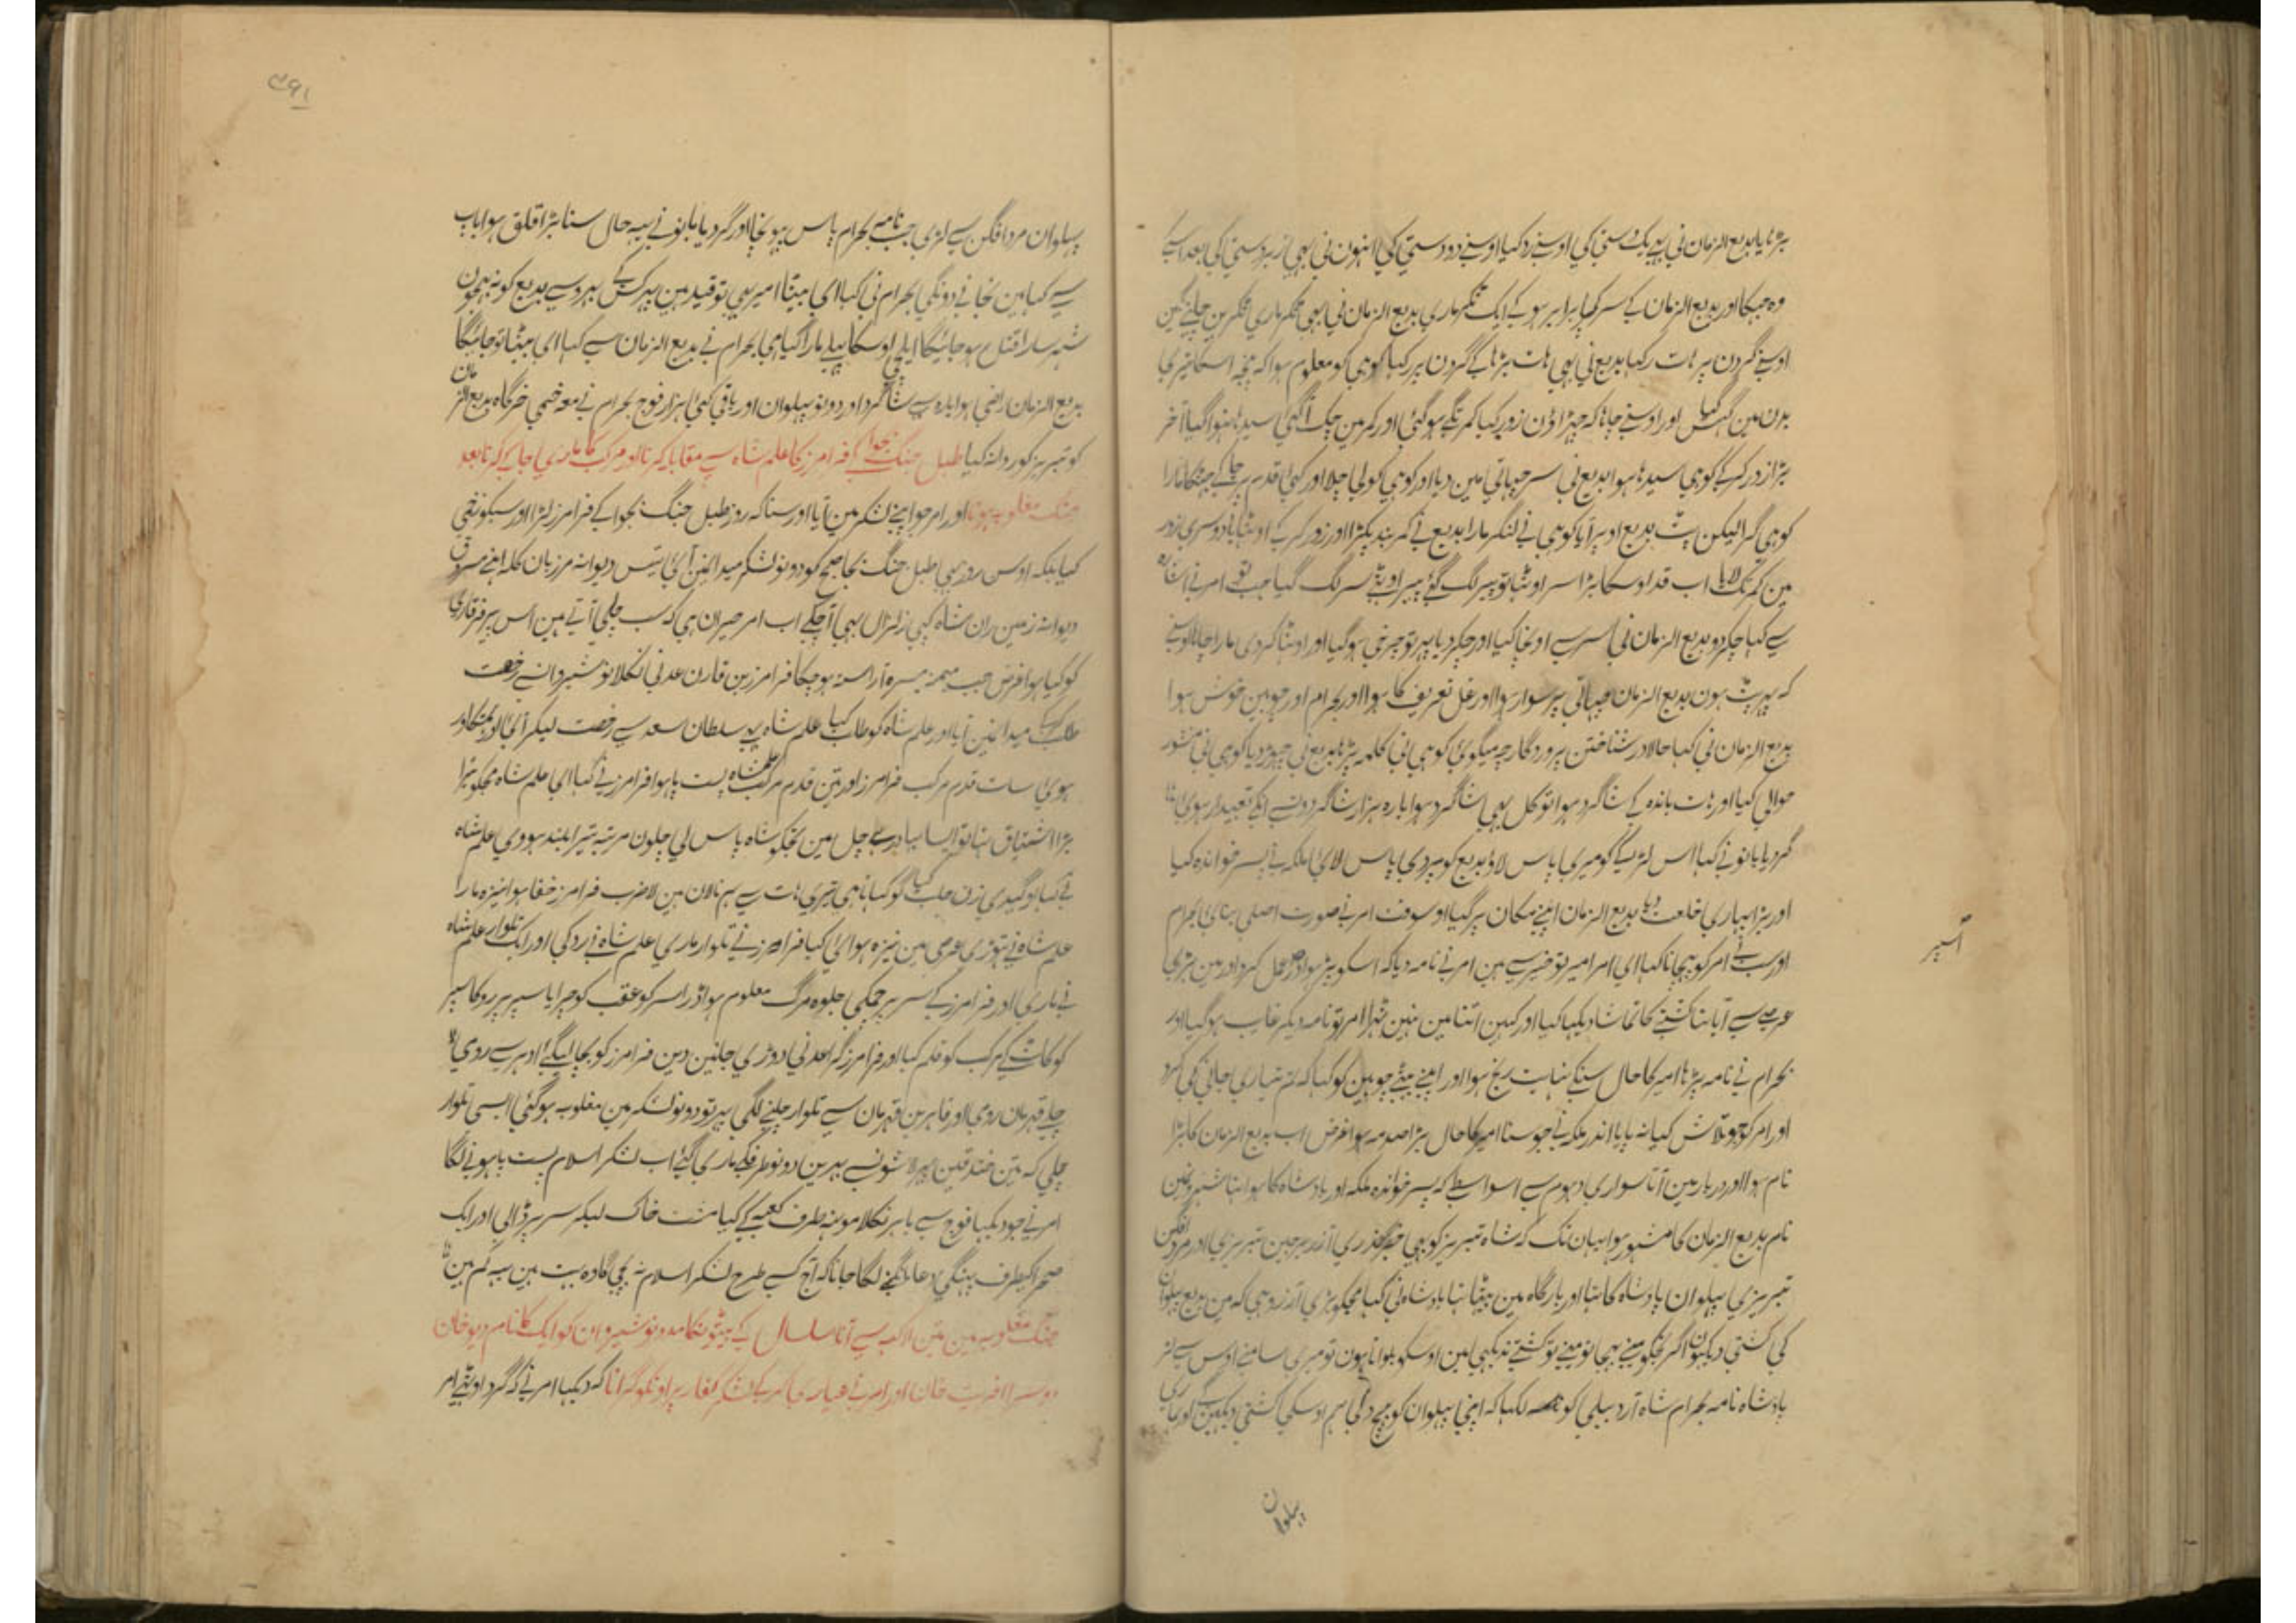 بڑہایا بدیع الزمان نی پہر یک دستی کی اوسنے رد کیا اوسنے دو دستی کی انہون نی بہی زبردستی کی بعد اسکے
وہ جہکا اور بدیع الزمان کے سر کی برابر ہو کے ایک ٹکر ماری بدیع الزمان نی بہی ٹکر ماری ٹکرین چلنے لگین
اوسنے گردن پر ہات رکہا بدیع نی بہی ہات بڑہا کے گردن پر رکہا کوہی کو معلوم ہوا کہ پنجہ اسکا تیری
بدن مین گہس گیا اور اوسنے چاہا کہ چہڑاؤن زور کیا کمر تکے ہو گئی اور کمر مین چک آ گئی سیدہا نہوا گیا آخر
بڑا زور کر کے کوہی سیدہا ہوا بدیع نی سر چہاتی مین دیا اور کوہی کو لی چلا اور کئی قدم پر جا کے جہٹکا مارا
کوہی گرا لیکن پٹ بدیع اوپر آیا کوہی نے لنگر مارا بدیع نے کمر بند پکڑا اور زور کر کے اوٹہایا دوسری زور
مین کمر تک لایا اب قد اوسکا بڑا سر اوٹہا تو پیر لگ گئے پیر اوٹہے سر لگ گیا جب تو امر نے اشارہ
سے کہا چکر دو بدیع الزمان نی سر سے اونچا کیا اور چکر دیا پہر تو چرخی ہو گیا اور اوٹہا کر دی مارا چاہا اوسنے
کہ پہر پٹ ہون بدیع الزمان چہاتی پر سوار ہوا اور غل تعریف کا ہوا اور بہرام اور چوبین خوش ہوا
بدیع الزمان نی کہا حالا در شناختن پروردگار چہ میگوئی کوہی نی کلمہ پڑہا بدیع نی چہوڑ دیا کوہی نی منشور
حوالی کیا اور ہات باندہ کے شاگرد ہوا تو کل بہی شاگرد ہوا بارہ ہزار شاگرد وتہے اپکے تعبیدار ہوئی
گردیا بانو نے کہا اس لڑکے کو میری پاس لاؤ بدیع کو بردی پاس لائی ملکہ نے پسر خواندہ کیا
اور بڑا بہاری خلعت دیا بدیع الزمان اپنے مکان پر گیا اوسوقت امر نے صورت اصلی بنائی بہرام
اور سب نے امر کو پہچانا کہا ای امر امیر تو خیر سے ہین امر نے نامہ دیا کہ اسکو پڑہو اور عمل کرو اور مین بڑی
عرصہ سے آیا تہا کشتی کا تماشا دیکہا کیا اور کہین اتنا مین نہین ٹہرا امر تو نامہ دیکر غایب ہو گیا اور
بہرام نے نامہ پڑہا امیر کا حال سنکے نہایت رنج ہوا اور اپنے بیٹے چوبین کو کہا کہ تم تیاری جانی کی کرو
اور امر کو جو تلاش کیا نہ پایا اندر ملکہ نے جو سنا امیر کا حال بڑا صدمہ ہوا غرض اب بدیع الزمان کا بڑا
نام ہوا اور دربار مین آتا سواری دہوم سے اسواسطے کہ پسر خواندہ ملکہ اور بادشاہ کا ہوا تہا شہر و مین
نام بدیع الزمان کا مشہور ہوا یہان تک کہ شاہ تبریز کو بہی خبر گذری آذر برجین تبریزی اور مرد افگن
تبریزی پہلوان بادشاہ کا تہا اور بارگاہ مین بیٹہا تہا بادشاہ نی کہا مجکو بڑی آرزو ہی کہ مین بدیع پہلوان
کی کشتی دیکہون اگر تجکو مینے بہیجا تو مینے تو کشتی نہ دیکہی مین اوسکو بلواتا ہون تو میری سامنے اوس سے لڑ
بادشاہ نامہ بہرام شاہ اردبیلی کو لکہا کہ اپنی پہلوان کو بہیج دو کی ہم اوسکی کشتی دیکہین اور ہماری
پہلوان
پہلوان مرد افگن سے لڑی جب نامہ بہرام پاس پہونچا اور گردیا بانو نے یہہ حال سنا بڑا قلق ہوا باپ
سے کہا مین نجانے دونگی بہرام نی کہا ای بیٹا امیر بہی تو قید ہین پہر کس کے بہروسے بدیع کو نہ بہیجون
شہر سارا قتل ہو جائیگا ایلچی اوسکا پہلے مارا گیا ہی بہرام نے بدیع الزمان سے کہا ای بیٹا تو جائیگا
بدیع الزمان راضی ہوا بارہ سے شاگرد اور دونو پہلوان اور باقی کئی ہزار فوج بہرام نے معہ خیمی خرگاہ بدیع الزمان
کو تبریز کو روانہ کیا طبل جنگ بجوا کے فرامرز کا علم شاہ سے مقابا کرنا اور مرکب کا ماری جا کے کرنا بعد
جنگ مغلوبہ ہونا اور امر جو اپنے لشکر مین آیا اور سنا کہ روز طبل جنگ بجوا کے فرامرز لڑا اور سبکو زخمی
کیا بلکہ اوس روز بہی طبل جنگ بجا صبح کو دونو لشکر میدانمین آئی تیس دیوانہ مرزبان کلہ اپنے مسروق
دیوانہ زمین ران شاہ کیپی زلزال بہی آ چکے اب امر حیران ہی کہ سب چلی آتے ہین اس پیر فرقاری
کو کیا ہوا غرض جب میمنہ میسرہ آراستہ ہو چکا فرامرز بن قارن عدنی نکلا نوشیروان سے رخصت
طلب کر کے میدانمین آیا اور علم شاہ کو طلب کیا علم شاہ بہی سلطان سعد سے رخصت لیکر آئی اور ہمتگاور
ہوئی سات قدم مرکب فرامرز اور تین قدم مرکب علم شاہ پست پا ہوا فرامرز نے کہا ای علم شاہ مجکو تیرا
بڑا اشتیاق تہا تو ایسا بہادر ہے چل مین تجکو شاہ پاس لی چلون مرتبہ تیرا بلند ہووی علم شاہ
نے کہا او گیدی زن جلب کیا گو کہاتا ہی تیری ہات سے ہم نالان ہین لا ضرب فرامرز خفا ہوا نیزہ مارا
علم شاہ نے تہوڑی عرصی مین نیزہ ہوائی کیا فرامرز نے تلوار ماری علم شاہ نے رد کی اور ایک تلوار علم شاہ
نے ماری اور فرامرز کے سر پر چمکی جلوہ مرگ معلوم ہوا ڈرا سر کو عقب کو چرایا سپر پر روکا سپر
کو کاٹ کے مرکب کو قلم کیا اور فرامرز گرا عدنی دوڑی جانین دین فرامرز کو بچا لیگئے اودہر سے رومی
چلے قہرمان رومی اور قاہر بن قہرمان سے تلوار چلنے لگی پہر تو دونو لشکر مین مغلوبہ ہو گئی ایسی تلوار
چلی کہ تین خندقین لاشونسے بہرین دونو طرف کے ماری گئے اب لشکر اسلام پست پا ہونے لگا
امر نے جو دیکہا فوج سے باہر نکلا مونہ طرف کعبے کے کیا مشت خاک لیکر سر پر ڈالی اور ایک
صحرا کیطرف پہنکی دعا مانگنے لگا جانا کہ آج کسی طرح لشکر اسلام نہ بچیگا وہ بہت ہین یہہ کم ہین
جنگ مغلوبہ مین تین لاکہہ سے آنا سلسال کے بیٹونکا مدد نوشیروان کو ایک کا نام دیوخان
دوسرا افریت خان اور امر نے عیاری کر کے لشکر کفار پر اونکو گرانا کہ دیکہا امر نے کہ گرد اوٹہے امر